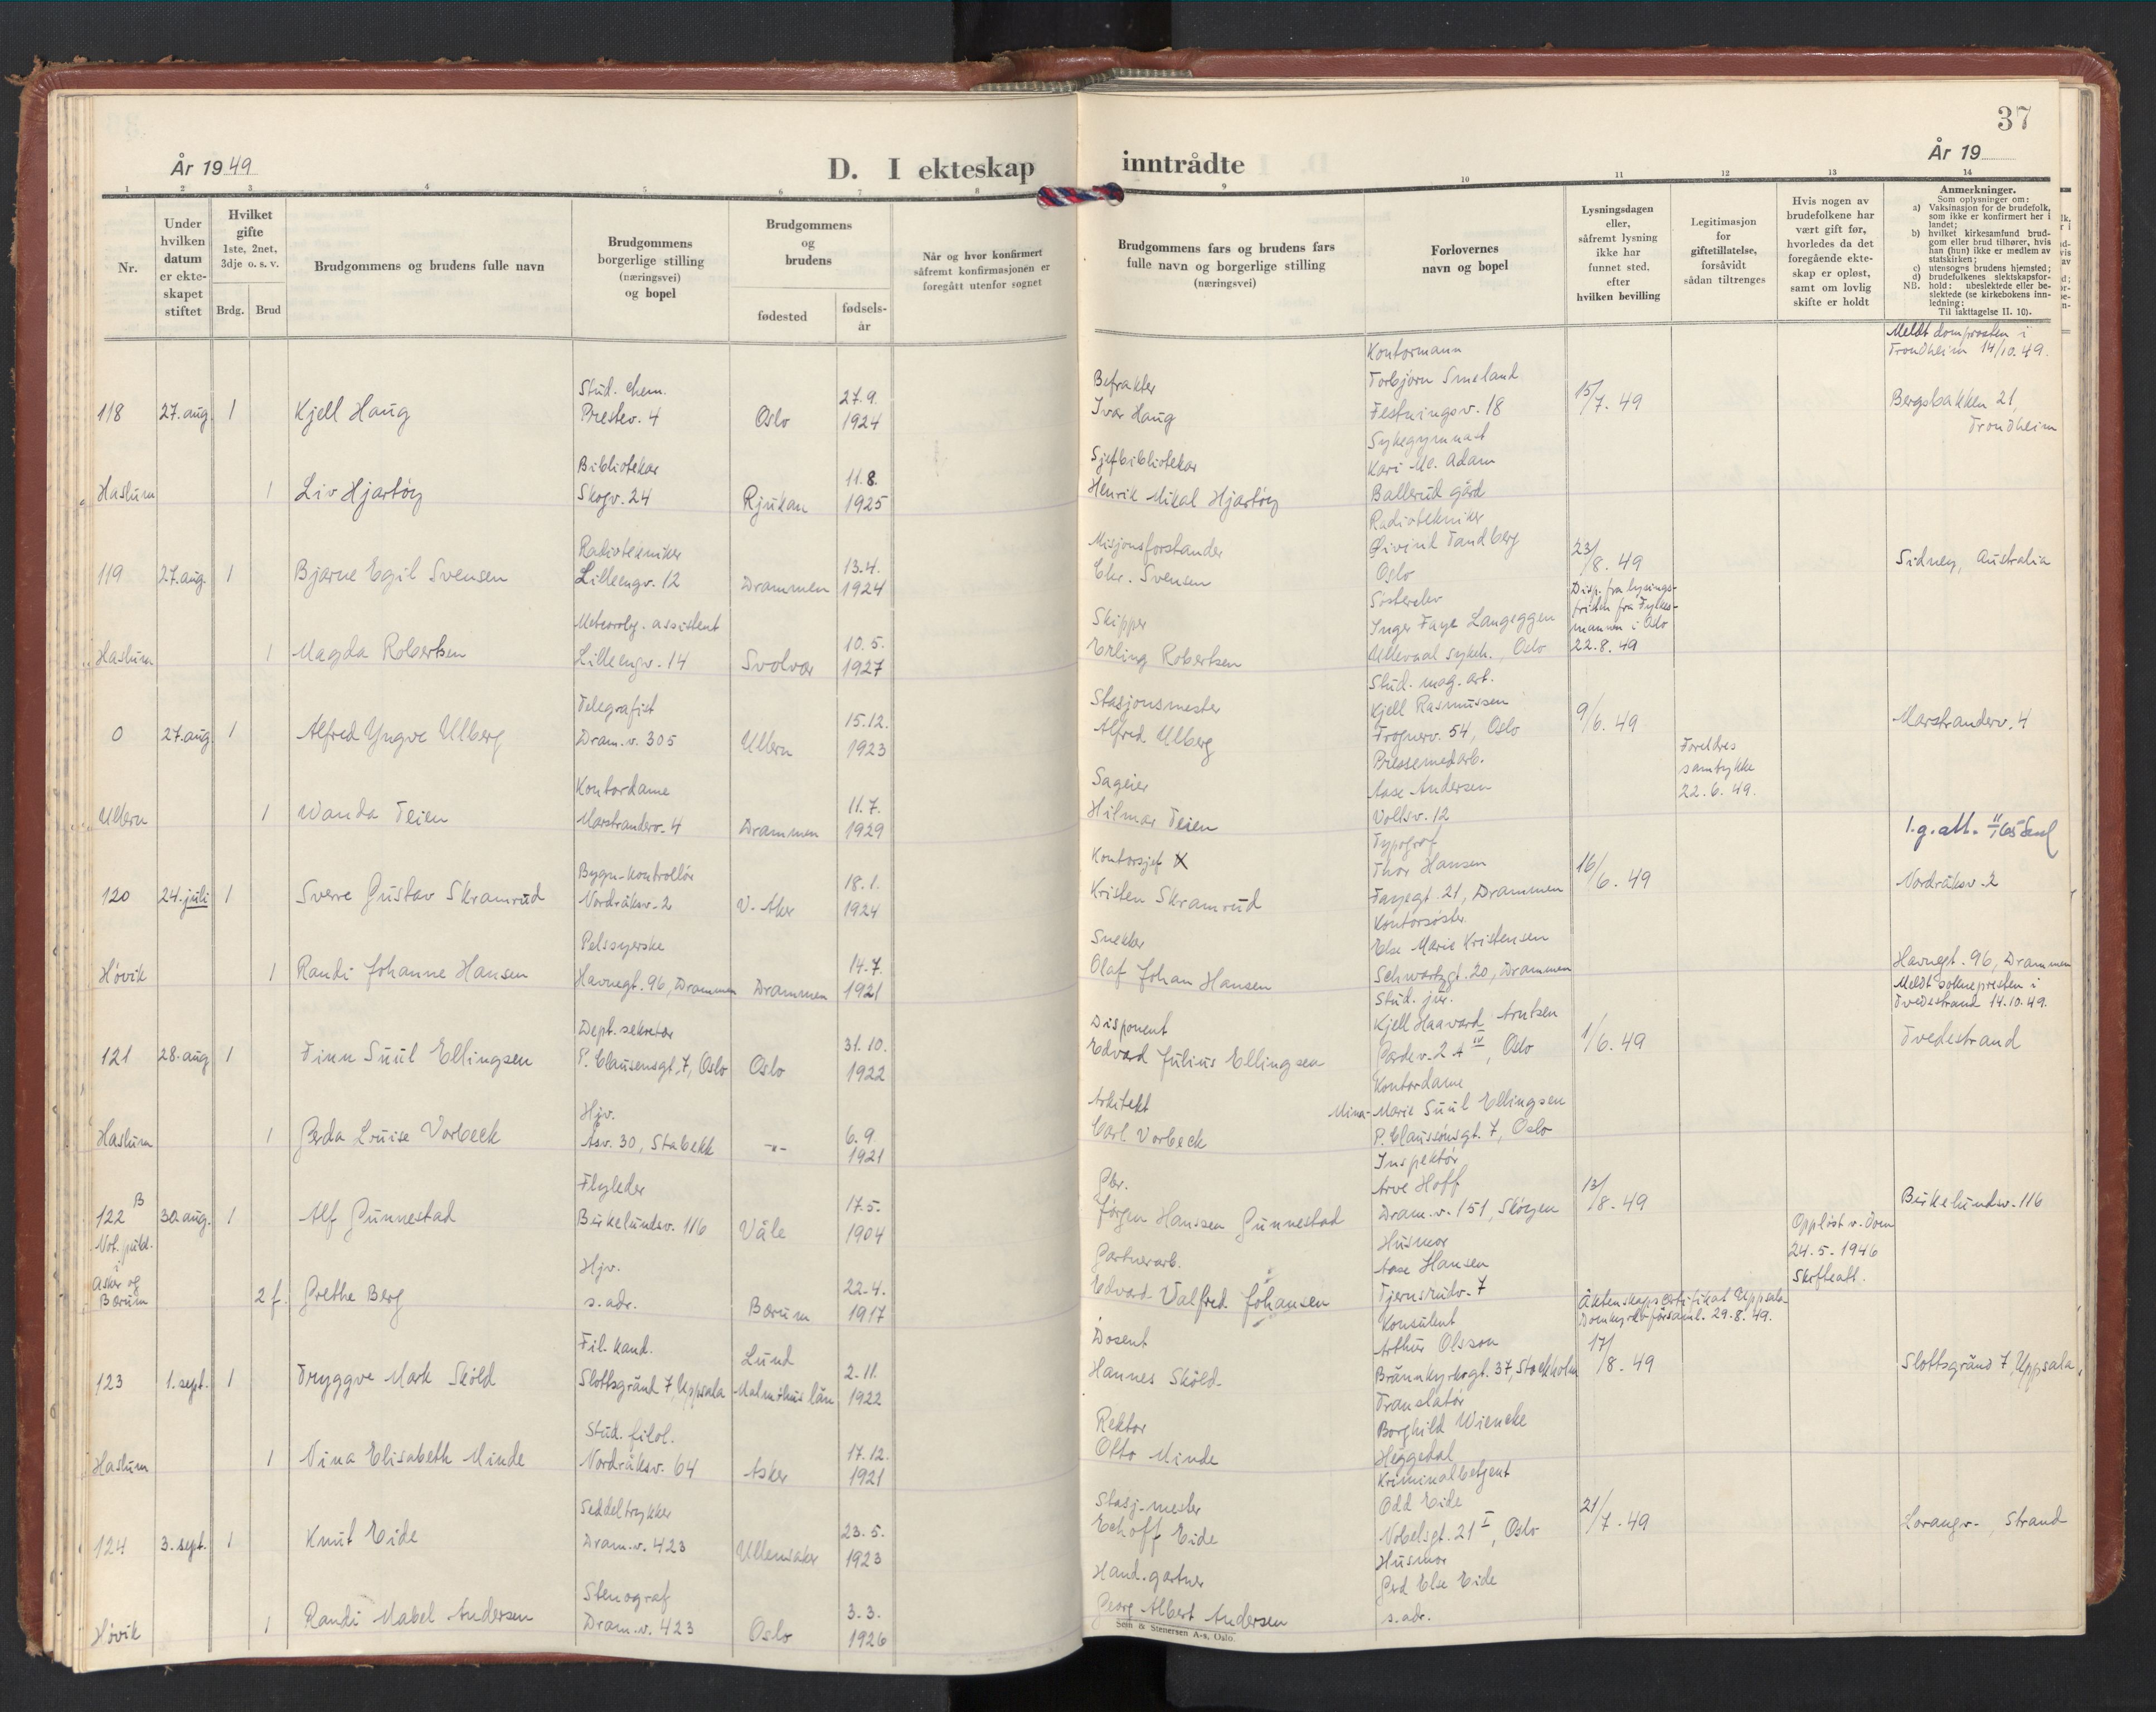 37
År 1949
D. I ekteskap inntrådte
År 19
1 2 3 4 5 6 7 8 9 10 11 12 13 14
Nr.
Under hvilken datum er ekteskapet stiftet
Hvilket gifte
1ste, 2net, 3dje o. s. v.
Brdg. Brud
Brudgommens og brudens fulle navn
Brudgommens borgerlige stilling (næringsvei) og bopel
Brudgommens og brudens
fødested
fødselsår
Når og hvor konfirmert såfremt konfirmasjonen er foregått utenfor sognet
Brudgommens fars og brudens fars fulle navn og borgerlige stilling (næringsvei)
Forlovernes navn og bopel
Lysningsdagen eller, såfremt lysning ikke har funnet sted, efter hvilken bevilling
Legitimasjon for giftetillatelse, forsåvidt sådan tiltrenges
Hvis nogen av brudefolkene har vært gift før, hvorledes da det foregående ekteskap er opløst, samt om lovlig skifte er holdt
Anmerkninger.
Som oplysninger om:
a) Vaksinasjon for de brudefolk, som ikke er konfirmert her i landet;
b) hvilket kirkesamfund brudgom eller brud tilhører, hvis han (hun) ikke er medlem av statskirken;
c) utensogns brudens hjemsted;
d) brudefolkenes slektskapsforhold: ubeslektede eller beslektede (se kirkebokens innledning:
NB. Til iakttagelse II. 10).
Meldt domprosten i
Trondheim 14/10.49.
118 27.aug. 1 Kjell Haug
Stud. chem.
Prestev. 4
Oslo
27.9.
1924
Befrakter
Ivar Haug
Kontormann
Torbjørn Smeland
Festningsv. 18
15/7.49
Bergsbakken 21,
Trondheim
Haslum 1 Liv Hjartøy
Bibliotekar
Skogv. 24
Rjukan
11.8.
1925
Sjefbibliotekar
Henrik Mikal Hjartøy
Sykegymnast
Kari Mc. Adam
Ballerud gård
119 27.aug. 1 Bjarne Egil Svensen
Radiotekniker
Lilleengv. 12
Drammen
13.4.
1924
Misjonsforstander
Chr. Svensen
Radiotekniker
Øivind Tandberg
Oslo
23/8.49
Disp. fra lysings-
fristen fra Fylkes-
mannen i Oslo
22.8.49
Sidney, Australia
Haslum 1 Magda Robertsen
Meteorolog. assistent
Lilleengv. 14
Svolvær
10.5.
1927
Skipper
Erling Robertsen
Søsterelev
Inger Faye Langeggen
Ullevaal sykeh., Oslo
0 27.aug. 1 Alfred Yngve Ulberg
Telegrafist
Dram.v. 305
Ullern
15.12.
1923
Stasjonsmester
Alfred Ulberg
Stud. mag. art.
Kjell Rasmussen
Frognerv. 54, Oslo
9/6.49
Marstranderv. 4
Ullern 1 Wanda Teien
Kontordame
Marstranderv. 4
Drammen
11.7.
1929
Sageier
Hilmar Teien
Pressemedarb.
Aase Andersen
Vollsv. 12
Foreldres
samtykke
22.6.49.
120 24.juli 1 Sverre Gustav Skramrud
Bygn.-kontrollør
Nordråksv. 2
V. Aker
18.1.
1924
Kontorsjef X
Kristen Skramrud
Typograf
Thor Hansen
Fayegt. 21, Drammen
16/6.49
Nordråksv. 2
Høvik 1 Randi Johanne Hansen
Pelssyerske
Havnegt. 96, Drammen
Drammen
14.7.
1921
Snekker
Olaf Johan Hansen
Kontorsøster
Else Marie Kristensen
Schwartzgt. 20, Drammen
Havnegt. 96, Drammen
Meldt sokneprest​en i
Tvedestrand 14.10.49.
121 28.aug 1 Finn Suul Ellingsen
Dept. sekretær
P. Clausensgt. 7, Oslo
Oslo
31.10.
1922
Disponent
Edvard Julius Ellingsen
Stud. jur.
Kjell Haavard Arntsen
Gardev. 2 A IV, Oslo
1/6.49
Tvedestrand
Haslum 1 Gerda Louise Vorbeck
Hjv.
Åsv. 30, Stabekk
-"-
6.9.
1921
Arkitekt
Carl Vorbeck
Kontordame
Mina-Marie Suul Ellingsen
P. Claussønsgt. 7, Oslo
122 B 30.aug. 1 Alf Gunnestad
Not. publ.
i
Asker og
Bærum
Flyleder
Birkelundsv. 116
Våle
17.5.
1904
Gbr.
Jørgen Hansen Gunnestad
Inspektør
Arve Hoff
Dram.v. 151, Skøyen
13/8.49
Birkelundsv. 116
2 f. Grethe Berg
Hjv.
s.adr.
Bærum
22.4.
1917
Gartnerarb.
Edvard Valfred Johansen
Husmor
Aase Hansen
Tjernsrudv. 7
Oppløst v. dom
24.5.1946
Skifteatt.
Äktenskapscertifikat Uppsala
Domkyrkoförsaml. 29.8.49.
123 1.sept. 1 Tryggve Mark Sköld
Fil. kand.
Slottsgränd 7, Uppsala
Lund
Malmöhus län
2.11.
1922
Dosent
Hannes Sköld
Konsulent
Arthur Olsson
Brännkyrkagt. 37, Stockholm
17/8.49
Slottsgränd 7, Uppsala
Haslum 1 Nina Elisabeth Minde
Stud. filol.
Nordråksv. 64
Asker
17.12.
1921
Rektor
Otto Minde
Translatør
Borghild Wiencke
Heggedal
124 3.sept. 1 Knut Eide
Seddeltrykker
Dram.v. 423
Ullensaker
23.5.
1923
Stasj.-mester
Echoff Eide
Kriminalbetjent
Odd Eide
Nobelsgt. 21 I, Oslo
21/7.49
Lorangv., Strand
Høvik 1 Randi Mabel Andersen
Stenograf
Dram.v. 423
Oslo
3.3.
1926
Hand.gartner
Georg Albert Andersen
Husmor
Gerd Else Eide
s.adr.
Sem & Stenersen A-s, Oslo.